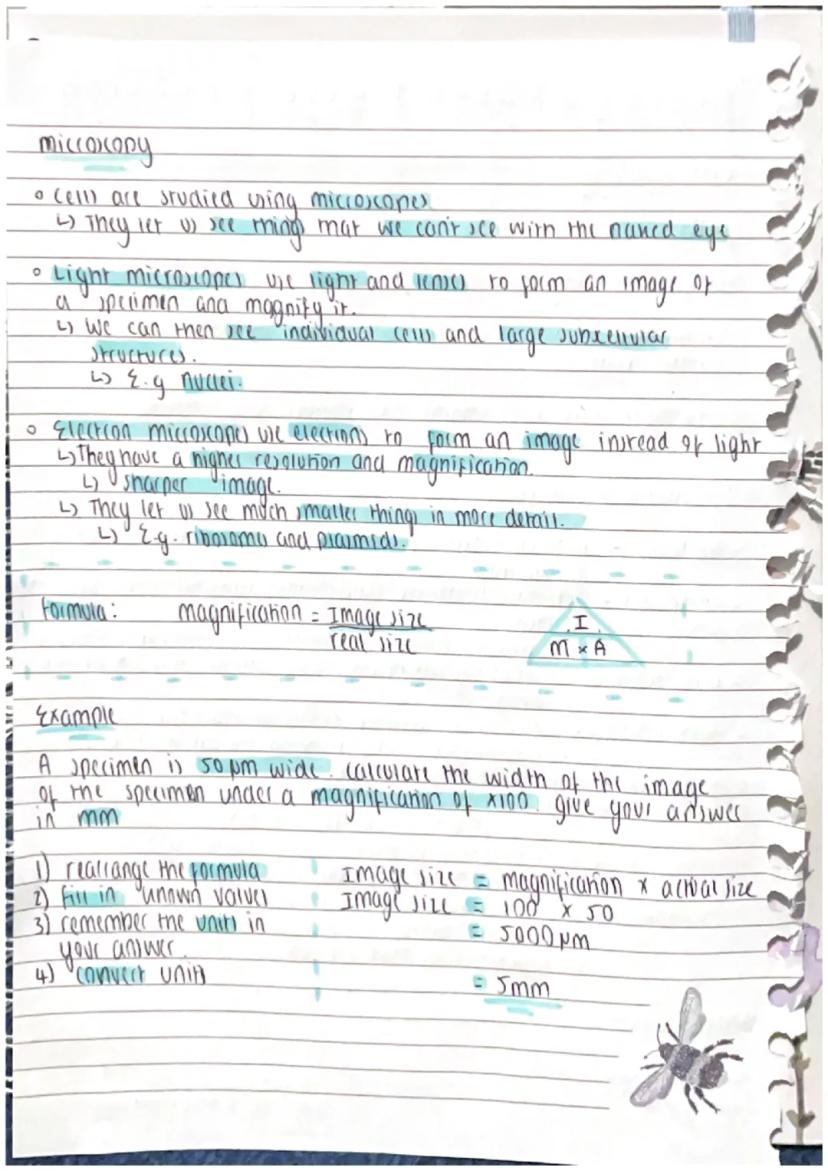 microscopy
◦ Cells are studied using microscopes
↳ They let us see things that we can't see with the naked eye
◦ Light microscopes use light and lenses to form an image of
a specimen and magnify it.
↳ We can then see individual cells and large subcellular
structures.
↳ E.g nuclei.
◦ Electron microscopes use electrons to form an image instead of light
↳ They have a higher resolution and magnification.
↳ sharper image.
↳ They let us see much smaller things in more detail.
↳ E.g. ribosomes and plasmids.
Formula: magnification = Image size
real size
I
M × A
Example
A specimen is 50 µm wide. Calculate the width of the image
of the specimen under a magnification of ×100. give your answer
in mm
1) rearrange the formula Image size = magnification × actual size
2) fill in unown values Image size = 100 × 50
3) remember the units in = 5000µm
your answer.
4) convert units = 5mm